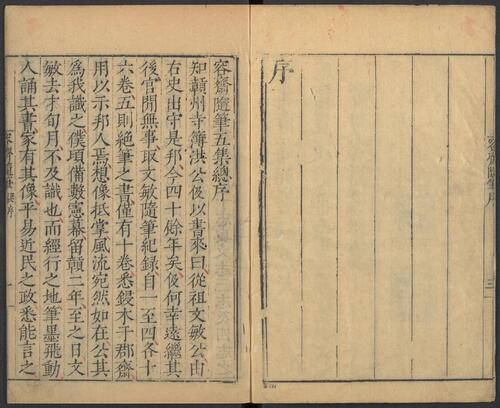 序
容齋隨筆序
三
容齋隨筆五集總序
知贛州寺簿洪公伋以書來曰從祖文敏公由
右史出守是邦今四十餘年矣伋何幸遠繼其
後官閒無事取文敏隨筆紀錄自一至四各十
六卷五則絕筆之書僅有十卷悉鋟木于郡齋
用以示邦人焉想像抵掌風流宛然如在公其
為我識之僕頃備數憲幕留贛二年至之日文
敏去才旬月不及識也而經行之地筆墨飛動
人誦其書家有其像平易近民之政悉能言之